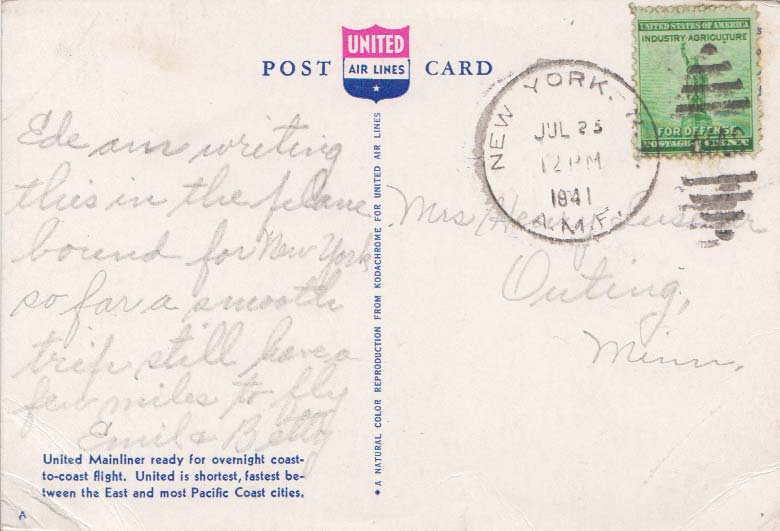 UNITED
AIR LINES
POST CARD
UNITED STATES OF AMERICA
INDUSTRY·AGRICULTURE
FOR DEFENSE
POSTAGE
NEW YORK, N.
JUL 25
12 PM
1941
A.M.F.
Ede am writing
this in the plane
bound for New York
so far a smooth
trip still have a
few miles to fly
Emil & Betty
United Mainliner ready for overnight coast-
to-coast flight. United is shortest, fastest be-
tween the East and most Pacific Coast cities.
A
A NATURAL COLOR REPRODUCTION FROM KODACHROME FOR UNITED AIR LINES
Mrs Henry
Outing,
Minn.